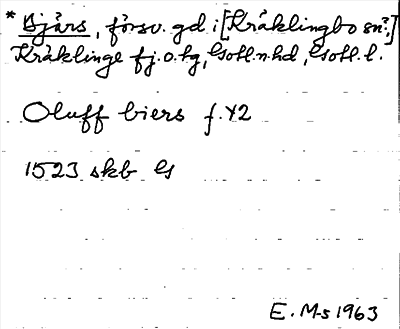 * Bjårs, försv. gd i [Kräklingbo sn?]
Kräklinge fj. o. tg, Gotl. n. hd, Gotl. l.
Oluff biers f. 42
1523 skb G
E. M-s 1963